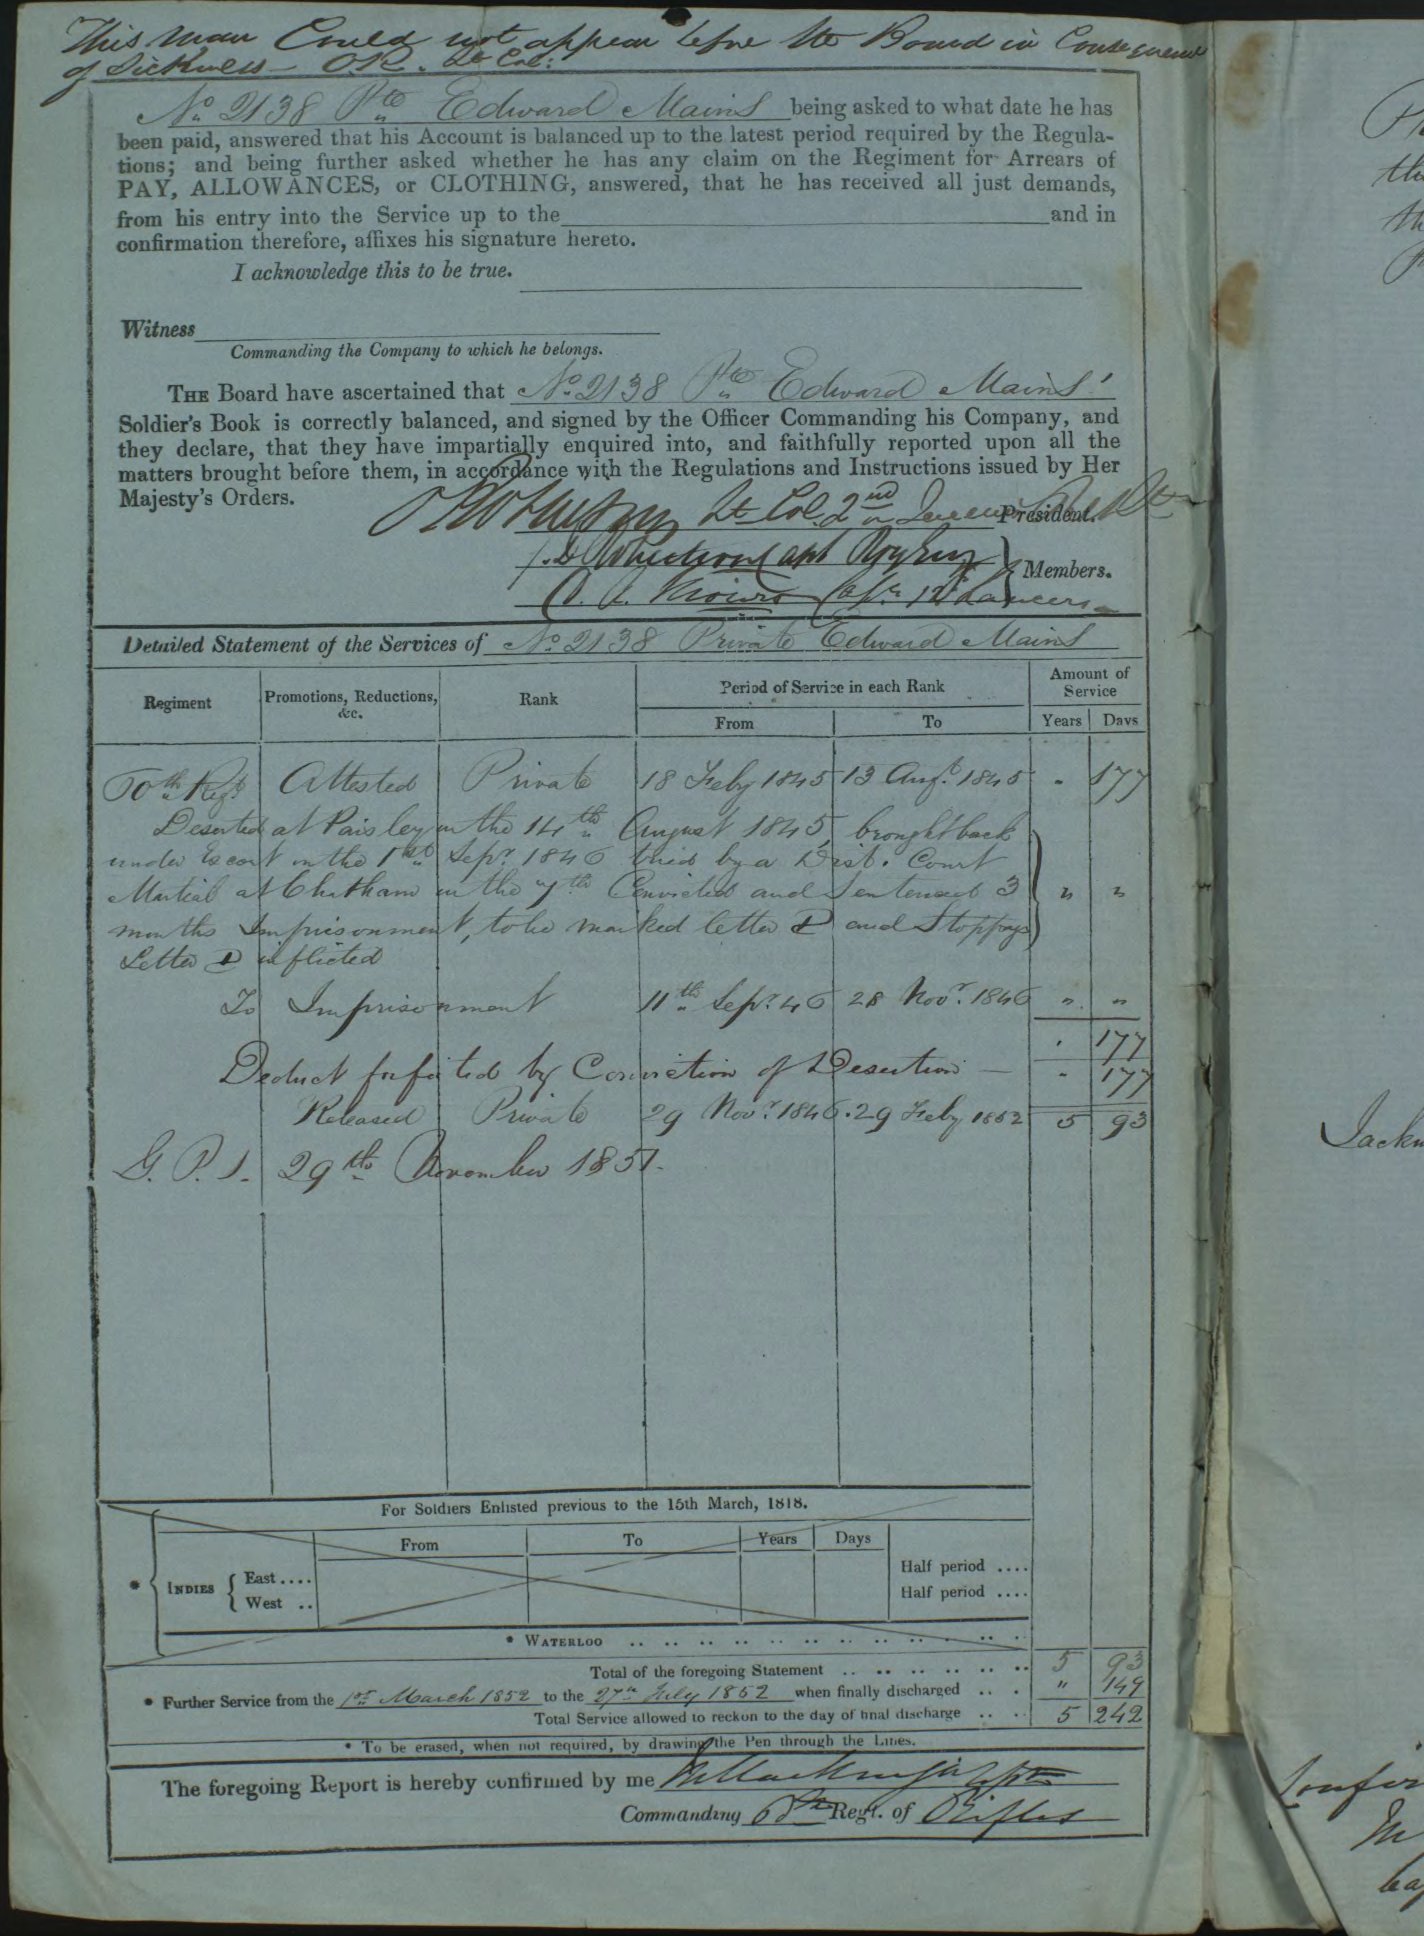 This man Could not appear before the Board in Consequence
of Sickness O.R. Lt Col:
No 2138 Pte Edward Mains being asked to what date he has
been paid, answered that his Account is balanced up to the latest period required by the Regula-
tions; and being further asked whether he has any claim on the Regiment for Arrears of
PAY, ALLOWANCES, or CLOTHING, answered, that he has received all just demands,
from his entry into the Service up to the and in
confirmation therefore, affixes his signature hereto.
I acknowledge this to be true.
Witness
Commanding the Company to which he belongs.
THE Board have ascertained that No. 2138 Pte Edward Mains'
Soldier's Book is correctly balanced, and signed by the Officer Commanding his Company, and
they declare, that they have impartially enquired into, and faithfully reported upon all the
matters brought before them, in accordance with the Regulations and Instructions issued by Her
Majesty's Orders.
Lt Col. 2nd President.
Capt
Members.
Capt 12th Lancers
Detailed Statement of the Services of No 2138 Private Edward Mains
Regiment Promotions, Reductions, &c. Rank Period of Service in each Rank Amount of Service
From To Years Days
60th Regt Attested Private 18 Feby 1845 13 Augt. 1845 " 177
Deserted at Paisley on the 14th August 1845, brought back
under Escort on the 1st Sepr. 1846 tried by a Dist. Court
Martial at Chatham on the 7th Convicted and Sentenced 3 " "
months Imprisonment, to be marked letter D and Stoppages
Letter D inflicted
To Imprisonment 11th Sepr. 46 28 Novr. 1846 " "
. 177
Deduct forfeited by Conviction of Desertion - " 177
Released Private 29 Novr. 1846. 29 Feby 1852 5 93
G. P. 1. 29th November 1851.
For Soldiers Enlisted previous to the 15th March, 1818.
From To Years Days
* INDIES East .... Half period ....
West .. Half period ....
* WATERLOO .. .. .. .. .. .. .. .. .. .. .. ..
Total of the foregoing Statement .. .. .. .. .. .. 5 93
* Further Service from the 1st March 1852 to the 27th July 1852 when finally discharged .. . " 149
Total Service allowed to reckon to the day of final discharge .. .. 5 242
* To be erased, when not required, by drawing the Pen through the Lines.
The foregoing Report is hereby confirmed by me
Commanding 60th Regt. of Rifles